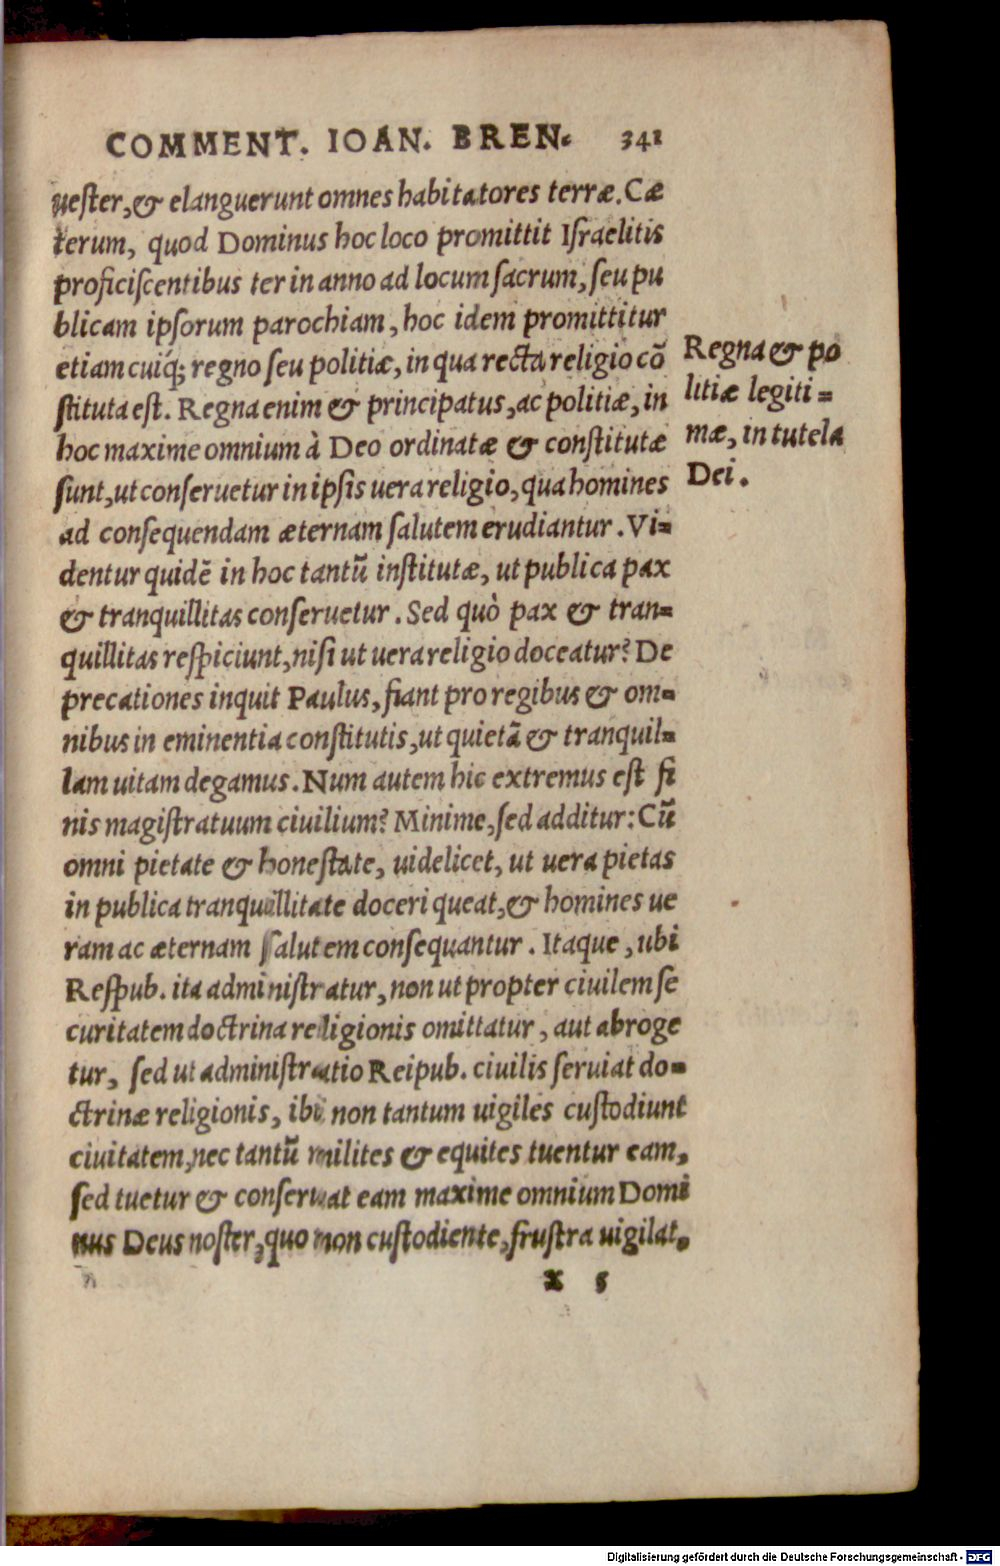 COMMENT. IOAN. BREN. 341
uester,& elanguerunt omnes habitatores terræ. Cæ
terum, quod Dominus hoc loco promittit Israelitis
proficiscentibus ter in anno ad locum sacrum, seu pu
blicam ipsorum parochiam, hoc idem promittitur
etiam cuiq́; regno seu politiæ, in qua recta religio cō
stituta est. Regna enim & principatus, ac politiæ, in
hoc maxime omnium à Deo ordinatæ & constitutæ
sunt, ut conseruetur in ipsis uera religio, qua homines
ad consequendam æternam salutem erudiantur. Vi=
dentur quidē in hoc tantū institutæ, ut publica pax
& tranquillitas conseruetur. Sed quò pax & tran=
quillitas respiciunt, nisi ut uera religio doceatur? De
precationes inquit Paulus, fiant pro regibus & om=
nibus in eminentia constitutis, ut quietā & tranquil=
lam uitam degamus. Num autem hic extremus est fi
nis magistratuum ciuilium? Minime, sed additur: Cū
omni pietate & honestate, uidelicet, ut uera pietas
in publica tranquillitate doceri queat, & homines ue
ram ac æternam salutem consequantur. Itaque, ubi
Respub. ita administratur, non ut propter ciuilem se
curitatem doctrina religionis omittatur, aut abroge
tur, sed ut administratio Reipub. ciuilis seruiat do=
ctrinæ religionis, ibi non tantum uigiles custodiunt
ciuitatem, nec tantū milites & equites tuentur eam,
sed tuetur & conseruat eam maxime omnium Domi
nus Deus noster, quo non custodiente, frustra uigilat.
X 5
Regna & po
litiæ legiti=
mæ, in tutela
Dei.
Digitalisierung gefördert durch die Deutsche Forschungsgemeinschaft - DFG